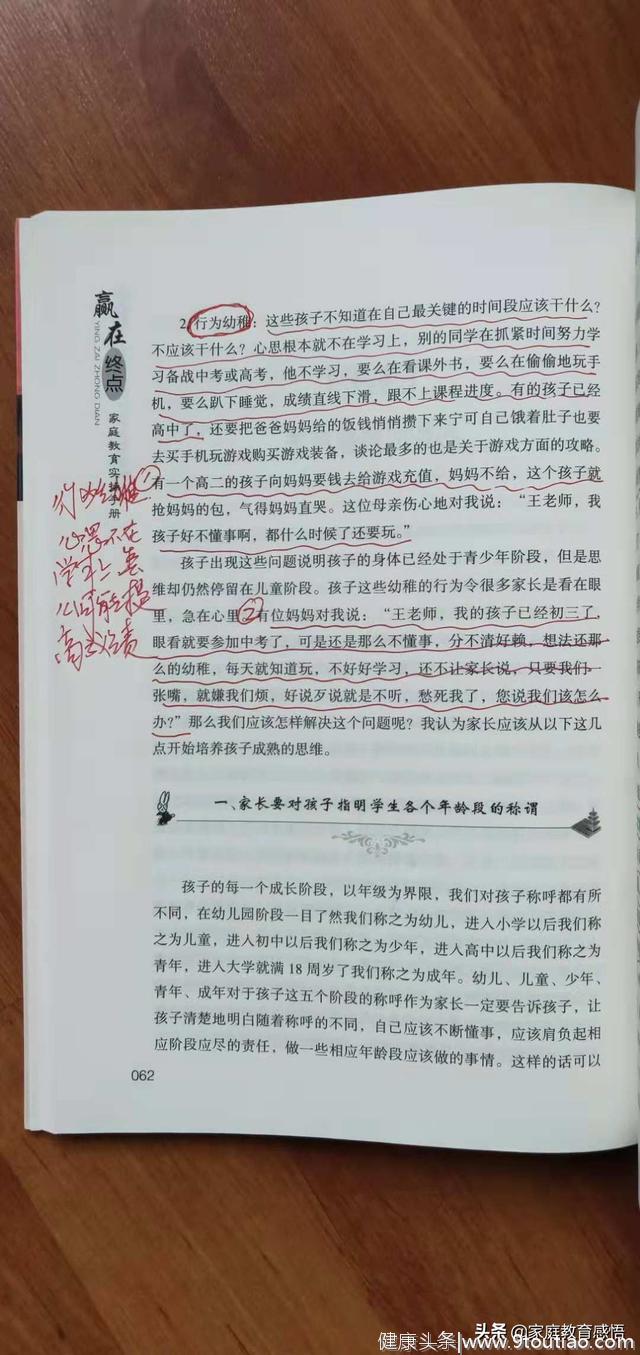 赢在终点
YING ZAI ZHONG DIAN
家庭教育实操手册
2.行为幼稚：这些孩子不知道在自己最关键的时间段应该干什么？
不应该干什么？心思根本就不在学习上，别的同学在抓紧时间努力学
习备战中考或高考，他不学习，要么在看课外书，要么在偷偷地玩手
机，要么趴下睡觉，成绩直线下滑，跟不上课程进度。有的孩子已经
高中了，还要把爸爸妈妈给的饭钱悄悄攒下来宁可自己饿着肚子也要
去买手机玩游戏购买游戏装备，谈论最多的也是关于游戏方面的攻略。
有一个高二的孩子向妈妈要钱去给游戏充值，妈妈不给，这个孩子就
抢妈妈的包，气得妈妈直哭。这位母亲伤心地对我说：“王老师，我
孩子好不懂事啊，都什么时候了还要玩。”
孩子出现这些问题说明孩子的身体已经处于青少年阶段，但是思
维却仍然停留在儿童阶段。孩子这些幼稚的行为令很多家长是看在眼
里，急在心里②有位妈妈对我说：“王老师，我的孩子已经初三了，
眼看就要参加中考了，可是还是那么不懂事，分不清好赖，想法还那
么的幼稚，每天就知道玩，不好好学习，还不让家长说，只要我们一
张嘴，就嫌我们烦，好说歹说就是不听，愁死我了，您说我们该怎么
办？”那么我们应该怎样解决这个问题呢？我认为家长应该从以下这几
点开始培养孩子成熟的思维。
①
一、家长要对孩子指明学生各个年龄段的称谓
孩子的每一个成长阶段，以年级为界限，我们对孩子称呼都有所
不同，在幼儿园阶段一目了然我们称之为幼儿，进入小学以后我们称
之为儿童，进入初中以后我们称之为少年，进入高中以后我们称之为
青年，进入大学就满 18 周岁了我们称之为成年。幼儿、儿童、少年、
青年、成年对于孩子这五个阶段的称呼作为家长一定要告诉孩子，让
孩子清楚地明白随着称呼的不同，自己应该不断懂事，应该肩负起相
应阶段应尽的责任，做一些相应年龄段应该做的事情。这样的话可以
062
头条 @家庭教育感悟
健康头条|www.9toutiao.com